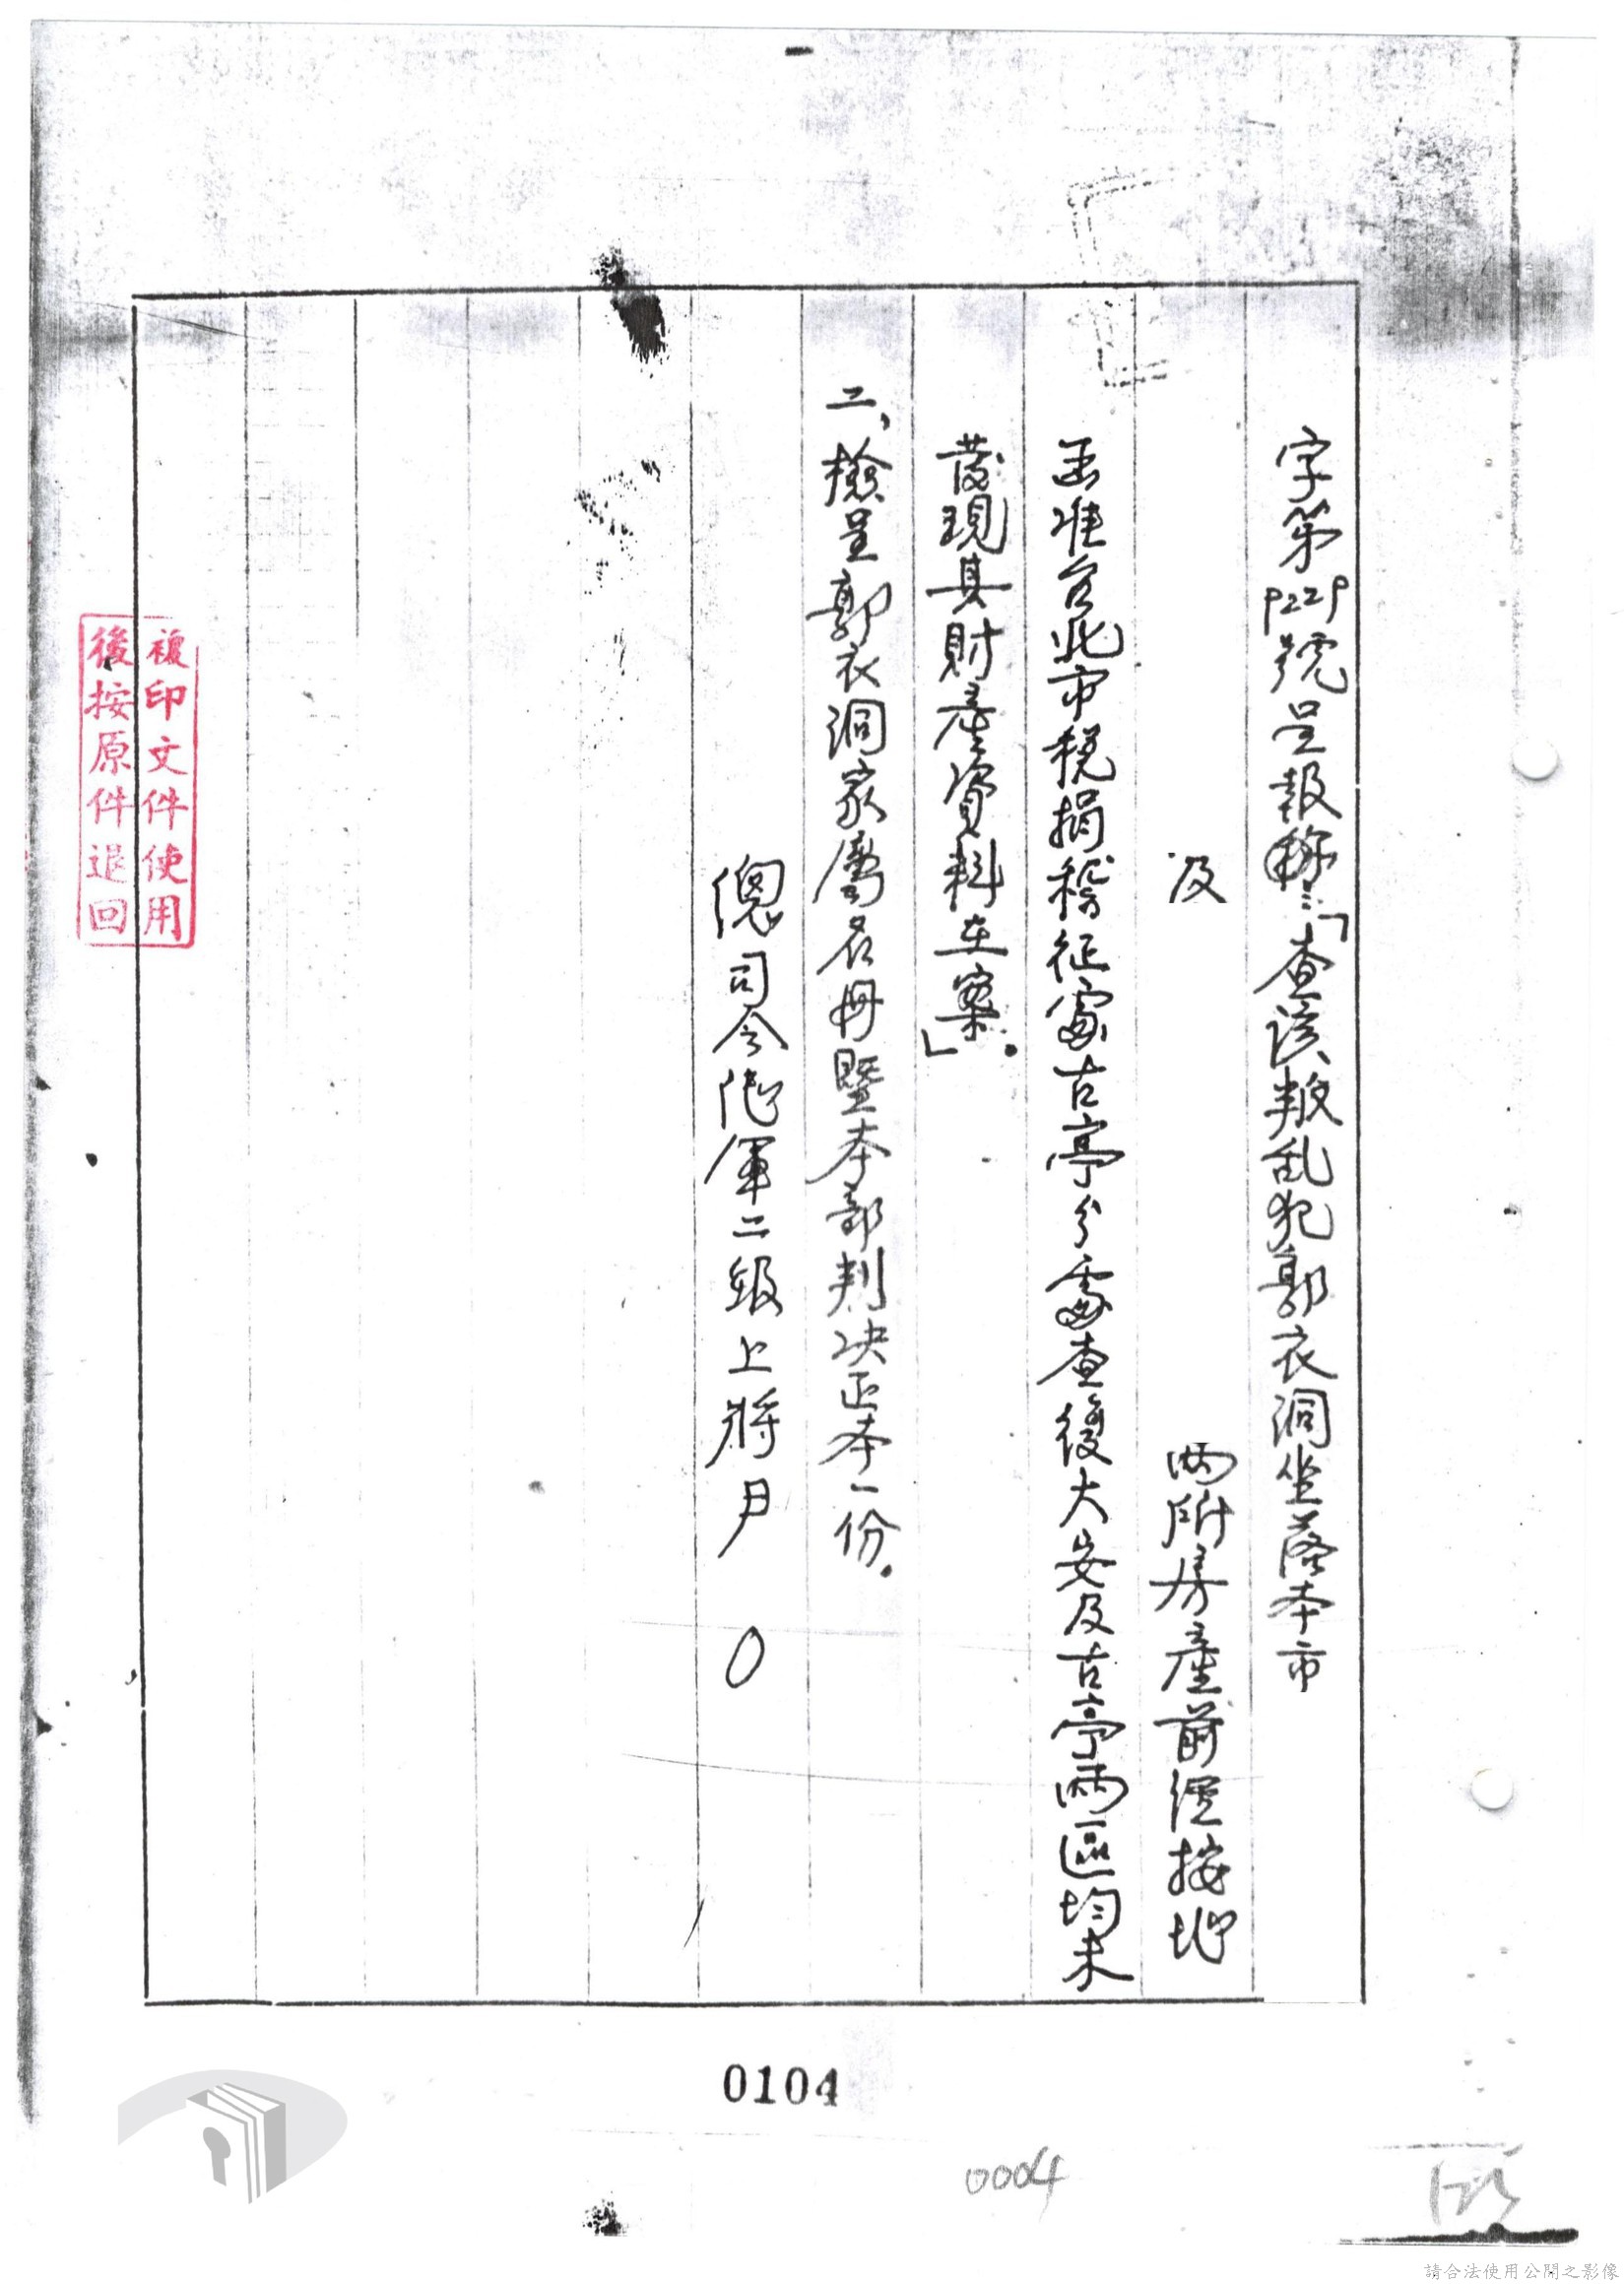 字第9229號呈報称:「查该叛乱犯郭衣洞坐落本市
及　　　　兩所房產前經按址
函准台北市稅捐稽征處古亭分處查復大安及古亭兩區均未
發現其財產資料在案」。
二、檢呈郭衣洞家屬名冊暨本部判决正本一份。
總司令陸軍二級上將尹〇
複印文件使用
後按原件退回
0104
0004
125
請合法使用公開之影像